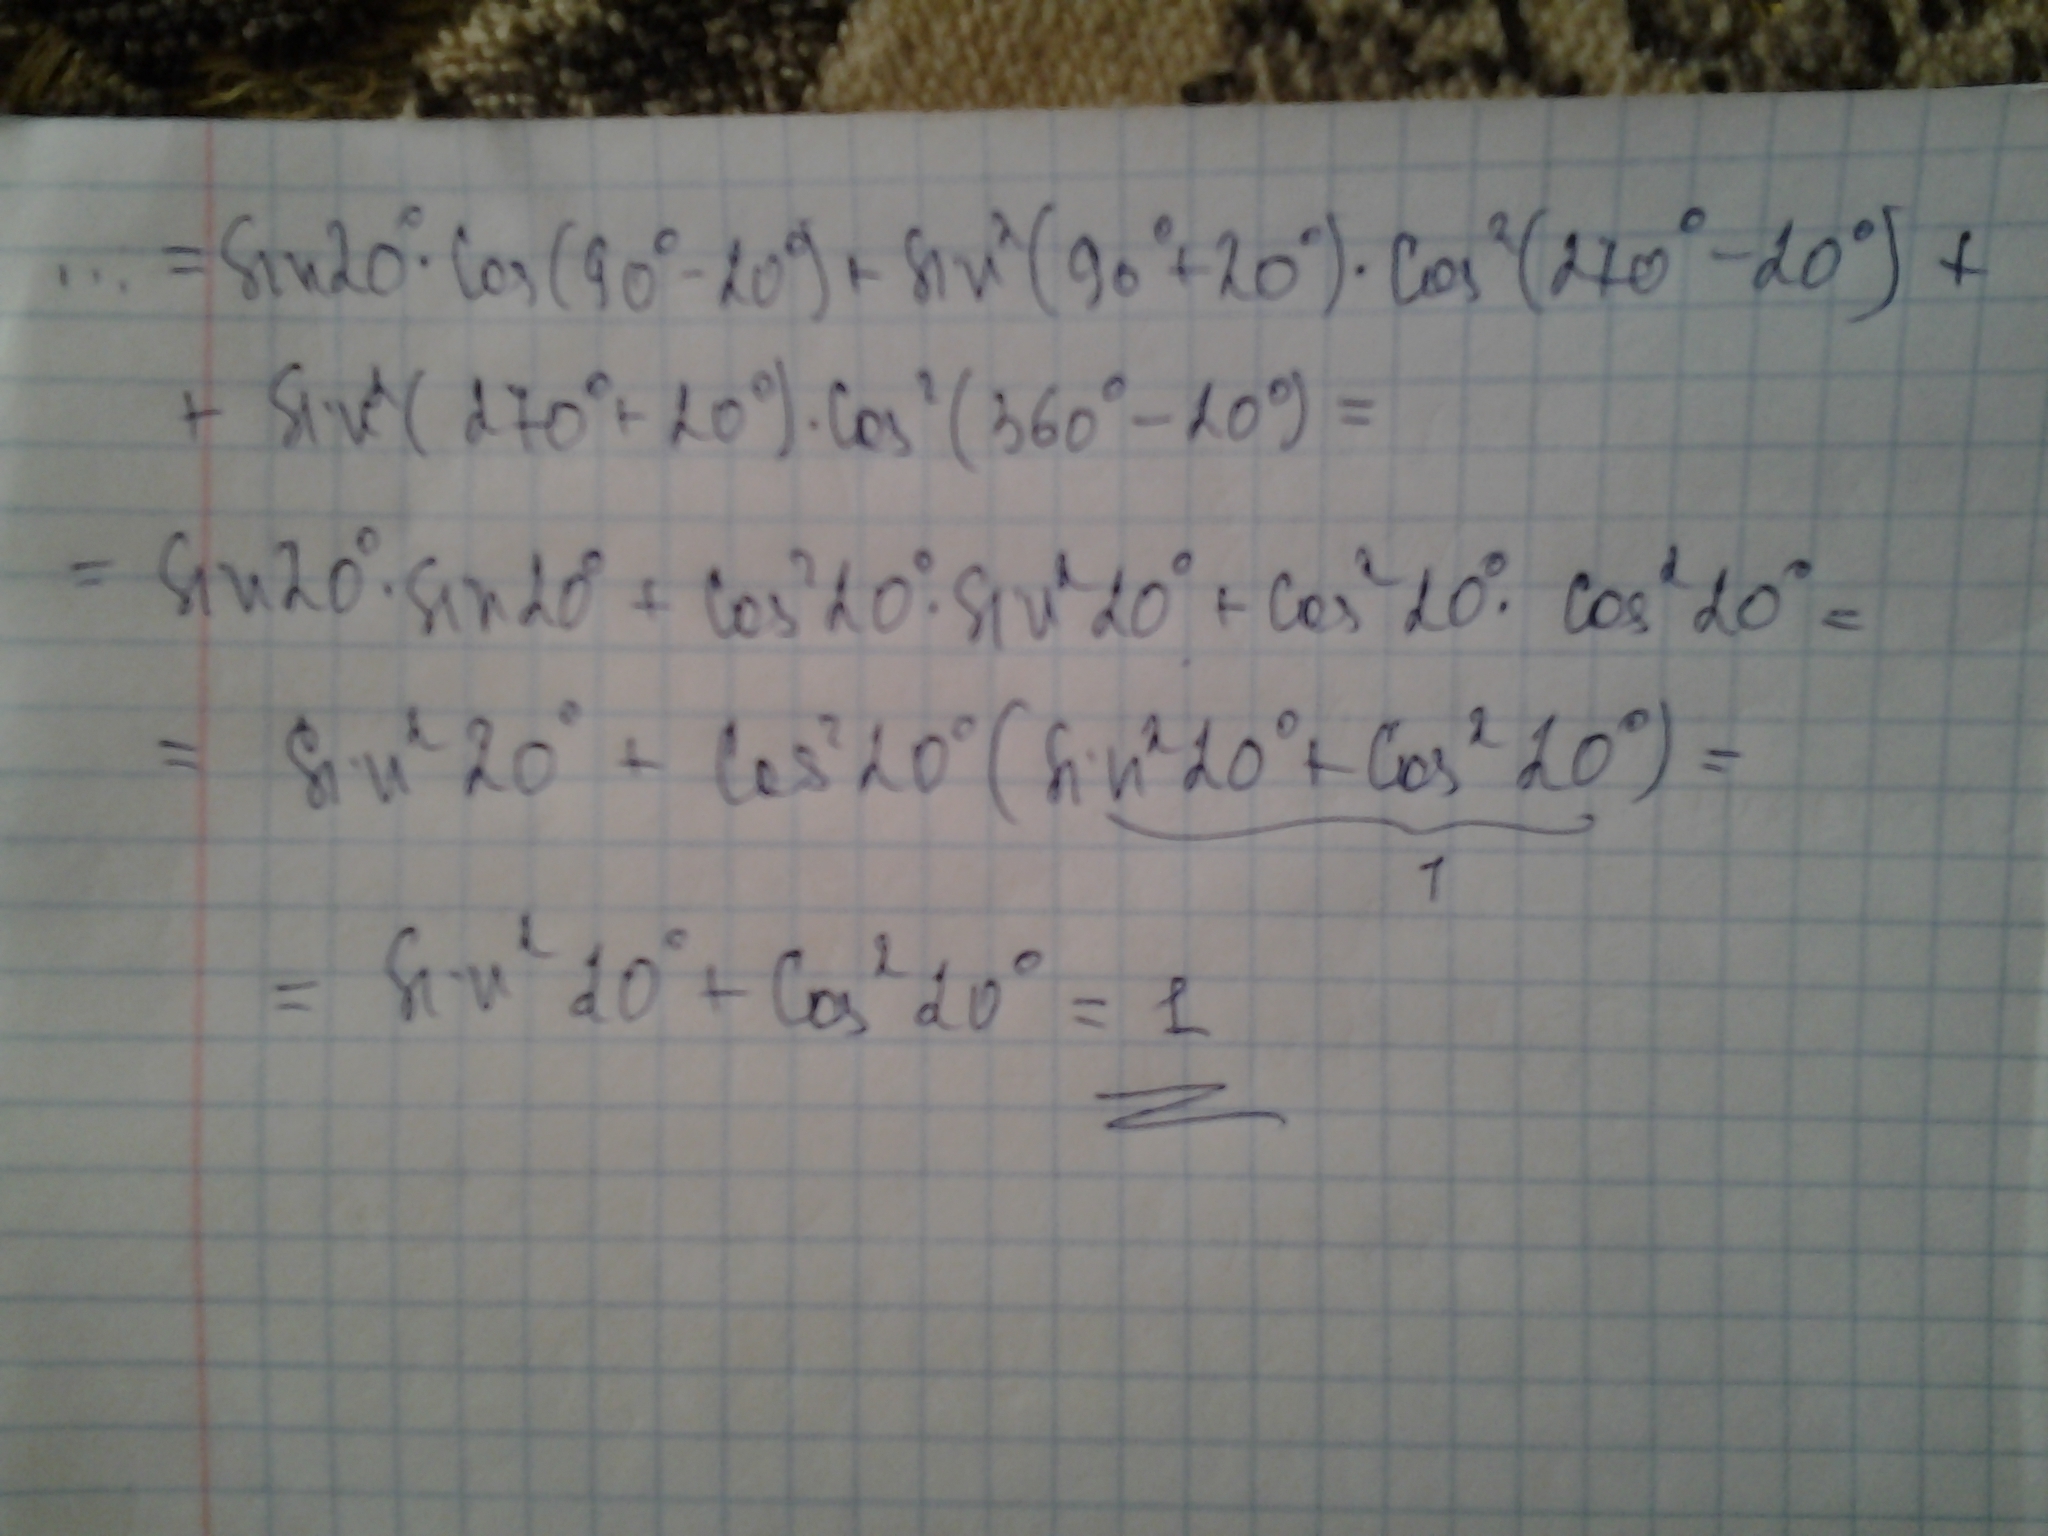 ... = Sin20°·Cos(90°-20°)+Sin²(90°+20°)·Cos²(270°-20°)+
+ Sin²(270°+20°)·Cos²(360°-20°)=
= Sin20°·Sin20°+Cos²20°·Sin²20°+Cos²20°·Cos²20°=
= Sin²20°+Cos²20°(Sin²20°+Cos²20°)=
1
= Sin²20°+Cos²20°=1